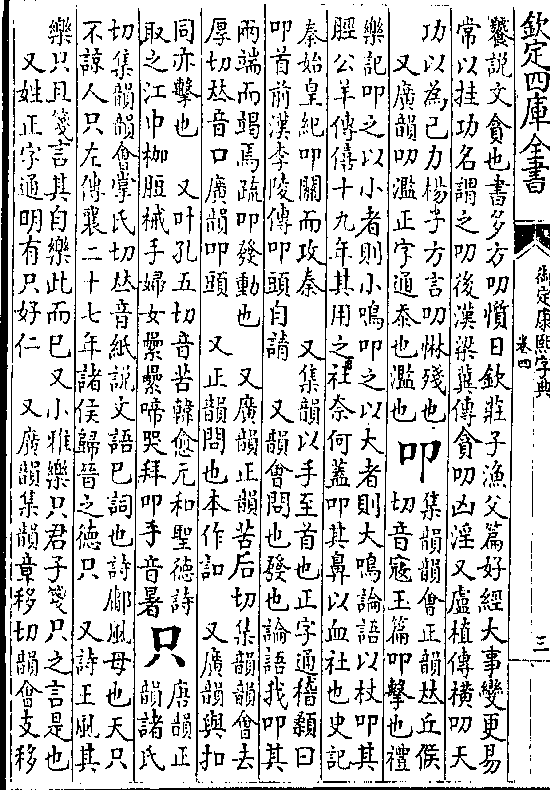 欽定四庫全書
御定康熙字典
卷四
三
饕說文貪也書多方叨懫日欽莊子漁父篇好經大事變更易
常以挂功名謂之叨後漢梁冀傳貪叨凶淫又盧植傳橫叨天
功以為己力楊子方言叨惏殘也
又廣韻叨濫正字通忝也濫也
叩
集韻韻會正韻𠀤丘𠊱
切音寇玉篇叩擊也禮
樂記叩之以小者則小鳴叩之以大者則大鳴論語以杖叩其
脛公羊傳僖十九年其用之社奈何蓋叩其鼻以血社也史記
秦始皇紀叩關而攻秦 又集韻以手至首也正字通稽顙曰
叩首前漢李陵傳叩頭自請 又韻會問也發也論語我叩其
兩端而竭焉疏叩發動也 又廣韻正韻苦后切集韻韻會去
厚切𠀤音口廣韻叩頭 又正韻問也本作訆 又廣韻與扣
同亦擊也 又叶孔五切音苦韓愈元和聖德詩
取之江中枷脰械手婦女纍纍啼哭拜叩手音暑
只
唐韻正
韻諸氏
切集韻韻會掌氏切𠀤音紙說文語已詞也詩鄘風母也天只
不諒人只左傳襄二十七年諸侯歸晉之德只 又詩王風其
樂只且箋言其自樂此而已又小雅樂只君子箋只之言是也
又姓正字通明有只好仁 又廣韻集韻章移切韻會支移